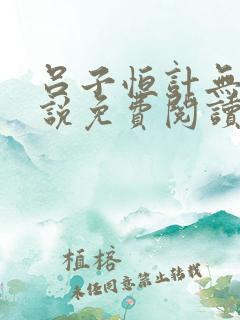 吕子恒計無
說免費閱讀
植榕
未任同意禁止转载